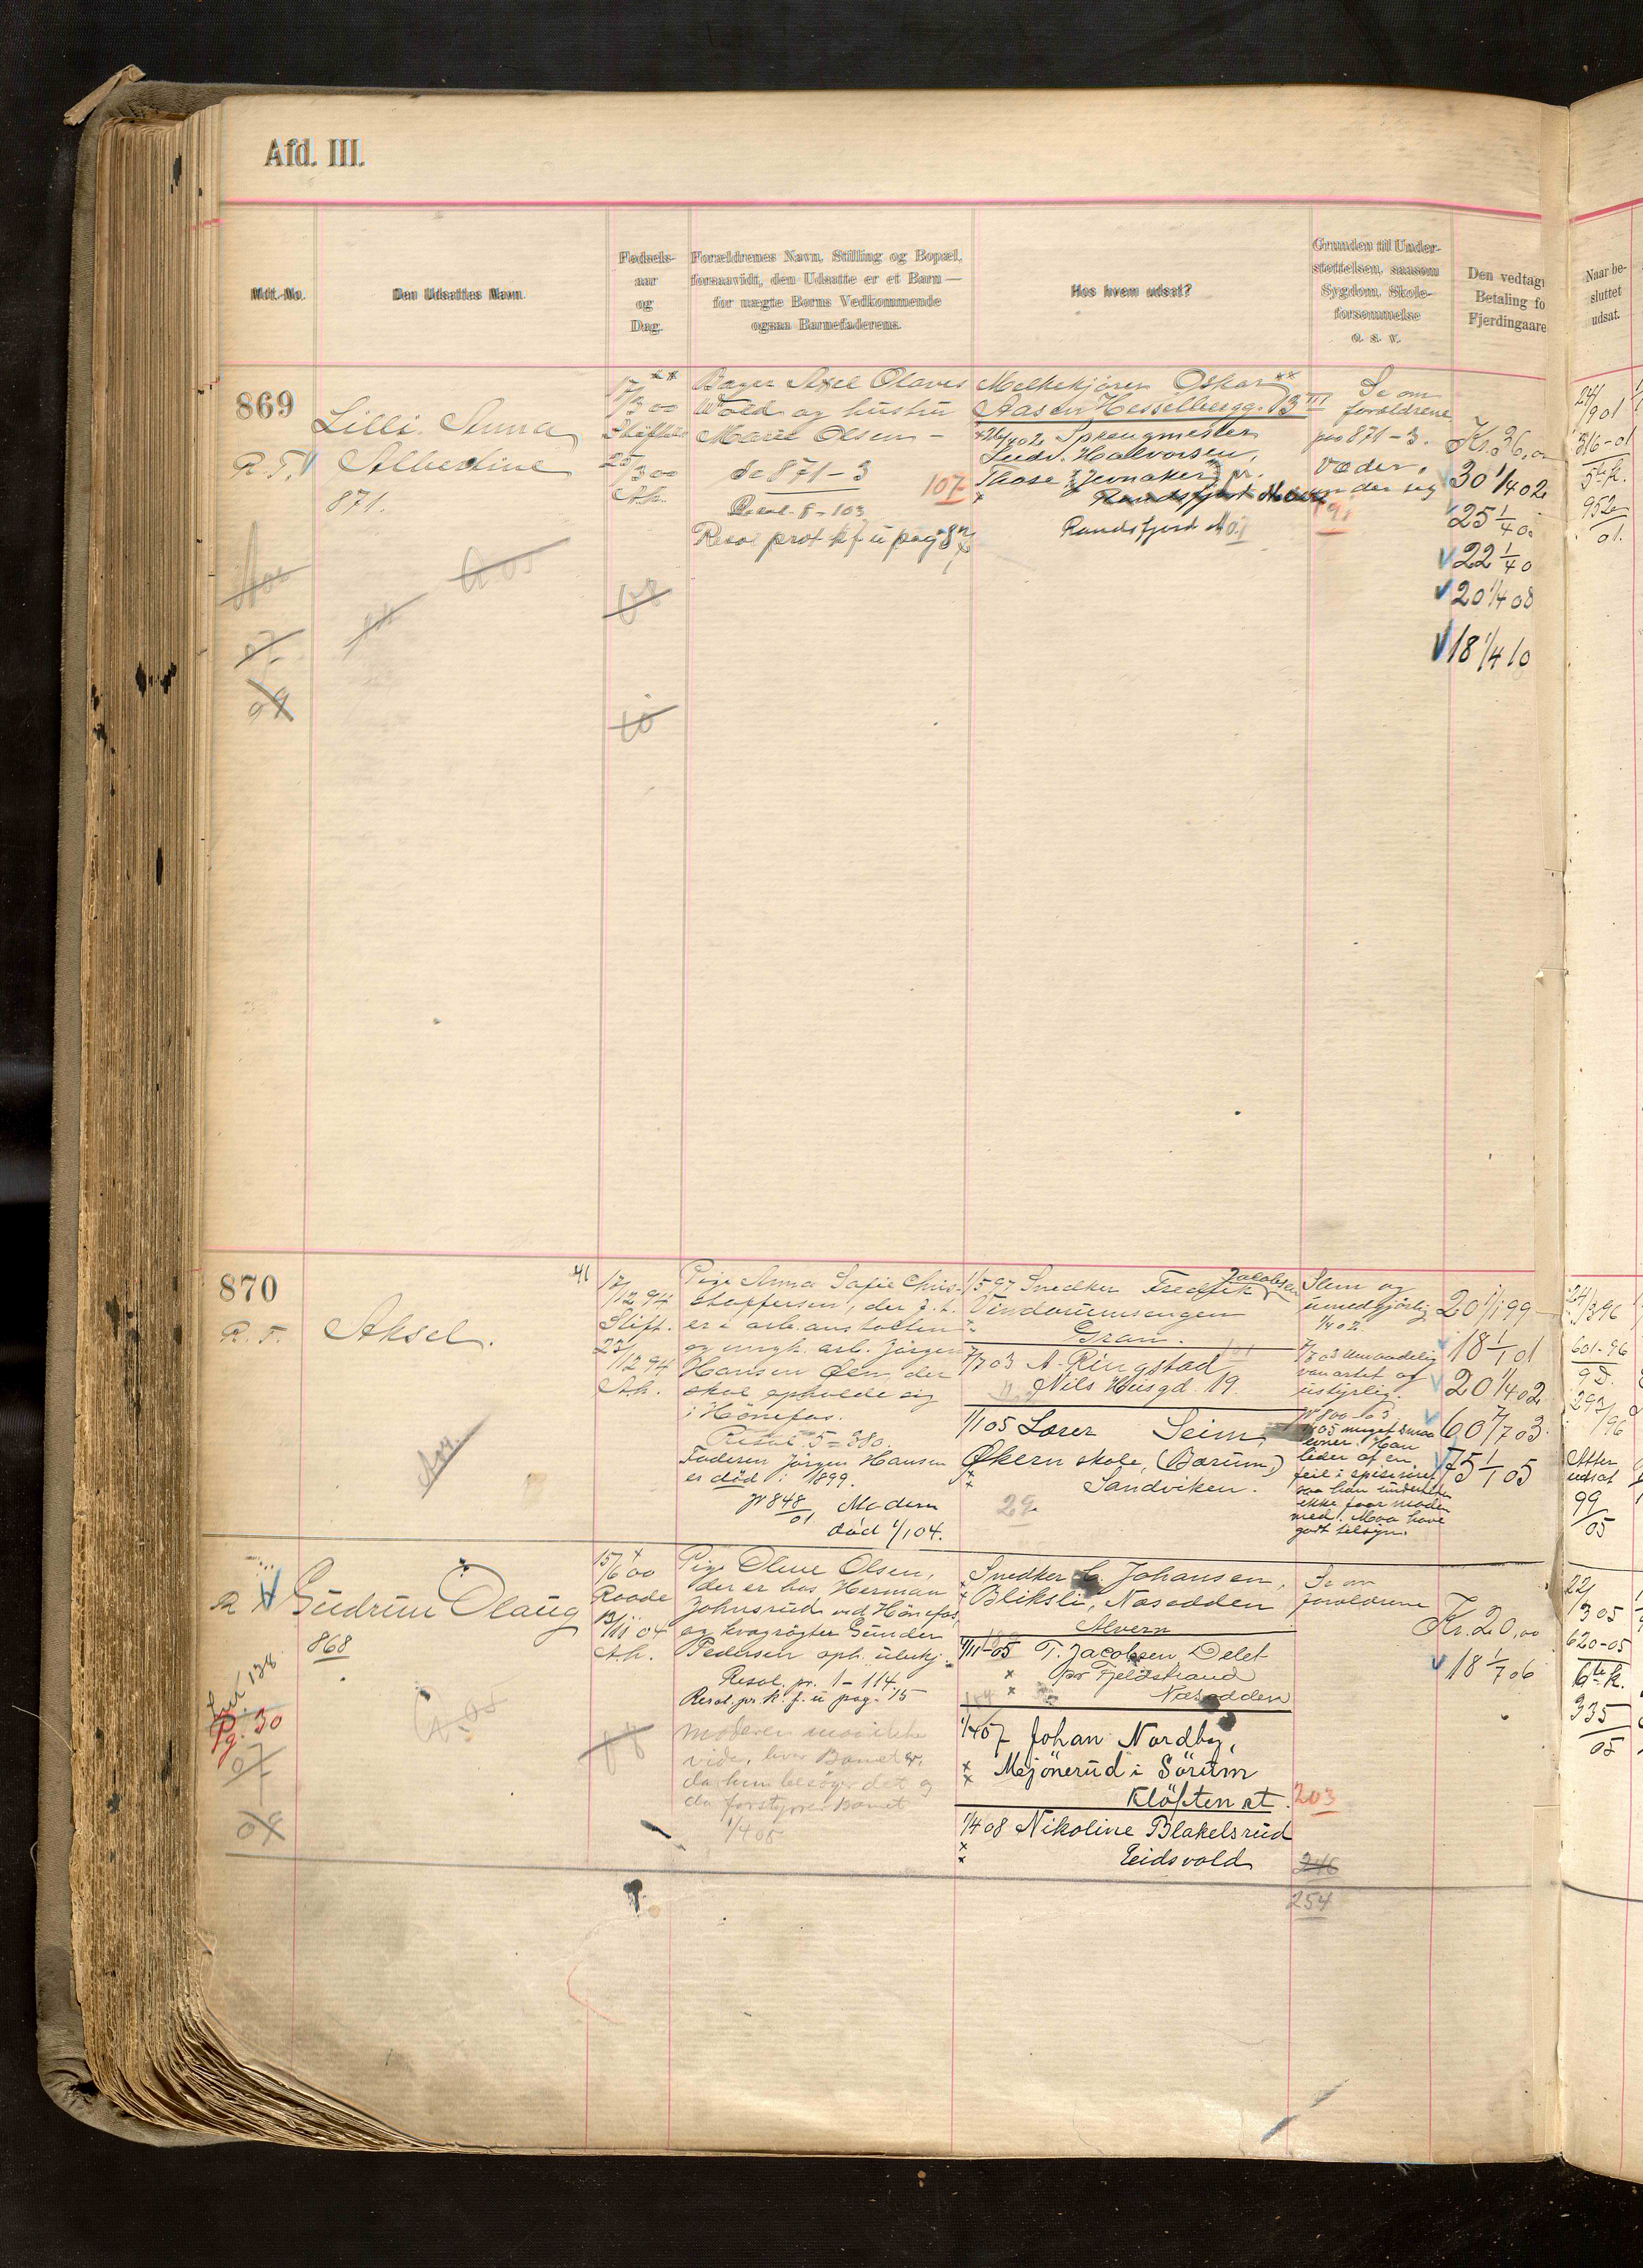 Afd. III.
Mdt.-No.
Den Udsattes Navn.
Fødsels-
aar
og
Dag.
Forældrenes Navn, Stilling og Bopæl,
forsaavidt, den Udsatte er et Barn —
for uægte Børns Vedkommende
ogsaa Barnefaderens.
Hos hvem udsat?
Grunden til Under-
støttelsen, saasom
Sygdom, Skole-
forsømmelse
o. s. v.
Den vedtag
Betaling fo
Fjerdingaare
Naar be-
sluttet
udsat.
869
Lilli Anna
R. T. Albertine
871.
17/3 00
25/3 00
A.h.
Bager Axel Olaves
Wold og hustru
Marie Olsen -
Se 871-3
Resol. 8-103
107
Melkekjører Oskar
Aasen Hesselbergg. 13 III
Sprengmester
Ludv. Halvorsen,
Those i Jevnaker pr.
Randsfjord No. 1
Se om
forældrene
paa 871-3.
Væder
under sig
91
Kr. 36,00
30 1/4 02
25 1/4 0
22 1/4 0
20 1/4 08
18 1/4 10
24/9 01
316-01
5te k.
952
01.
07
09
10
870
R. T. Aksel.
17/12 94
Stift.
23/12 94
A.h.
Pige Anna Sofie Chris-
stoffersen, der z. t.
er i arb. anstalten
og ungk. arb. Jørgen
Hansen Øen, der
skal opholde sig
i Hønefos.
Resol. 5-380
Faderen Jørgen Hansen
er død i 1899.
W 848/01 Moderen
død 1/1 04.
1/5 97 Snedker Fredrik Jacobsen
Vindorumsengen
Gran.
7/7 03 A. Ringstad
Nils Husgd. 19.
1/1 05 Lærer Seim,
Økern skole, (Bærum,)
Sandviken.
29.
Slem og
umedgjørlig
1/4 02
7/7 03 Umaadelig
vanartet og
ustyrlig.
W 800-03
1/1 05 meget smaa
evner. Han
lider af en
feil i spiserøret
saa han undertiden
ikke faar maden
ned. Maa have
godt tilsyn.
20 1/1 99
18 1/1 01
20 1/4 02
60 7/7 03
75 1/1 05
24/3 96
601-96
95.
293/96
Atter
udsat
99/05
Gudrun Olaug
868
Pg. 30
07
15/6 00
Raade
13/11 04
A.h.
Pige Oline Olsen,
der er hos Herman
Johnsrud ved Hønefos,
og kvægrøgter Gunder
Pedersen oph. ubekj.
Resol. pr. 1-114.
Resol. pr. k. f. u pag. 15
Moderen maa ikke
vide, hvor Barnet er,
da hun besøger det og
da forstyrrer Barnet
1/4 05
Snedker C. Johansen,
Bliksli, Næsodden
Alvern
1/11-05 T. Jacobsen Delet
pr Fjeldstrand
Næsodden
1/4 07 Johan Nordby,
Mejönerud i Sörum
Klöften st.
203
1/4 08 Nikoline Blakelsrud
Eidsvold
246
254
Se om
forældrene
Kr. 20,00
18 1/7 06
22/3 05
620-05
6te k.
335
05